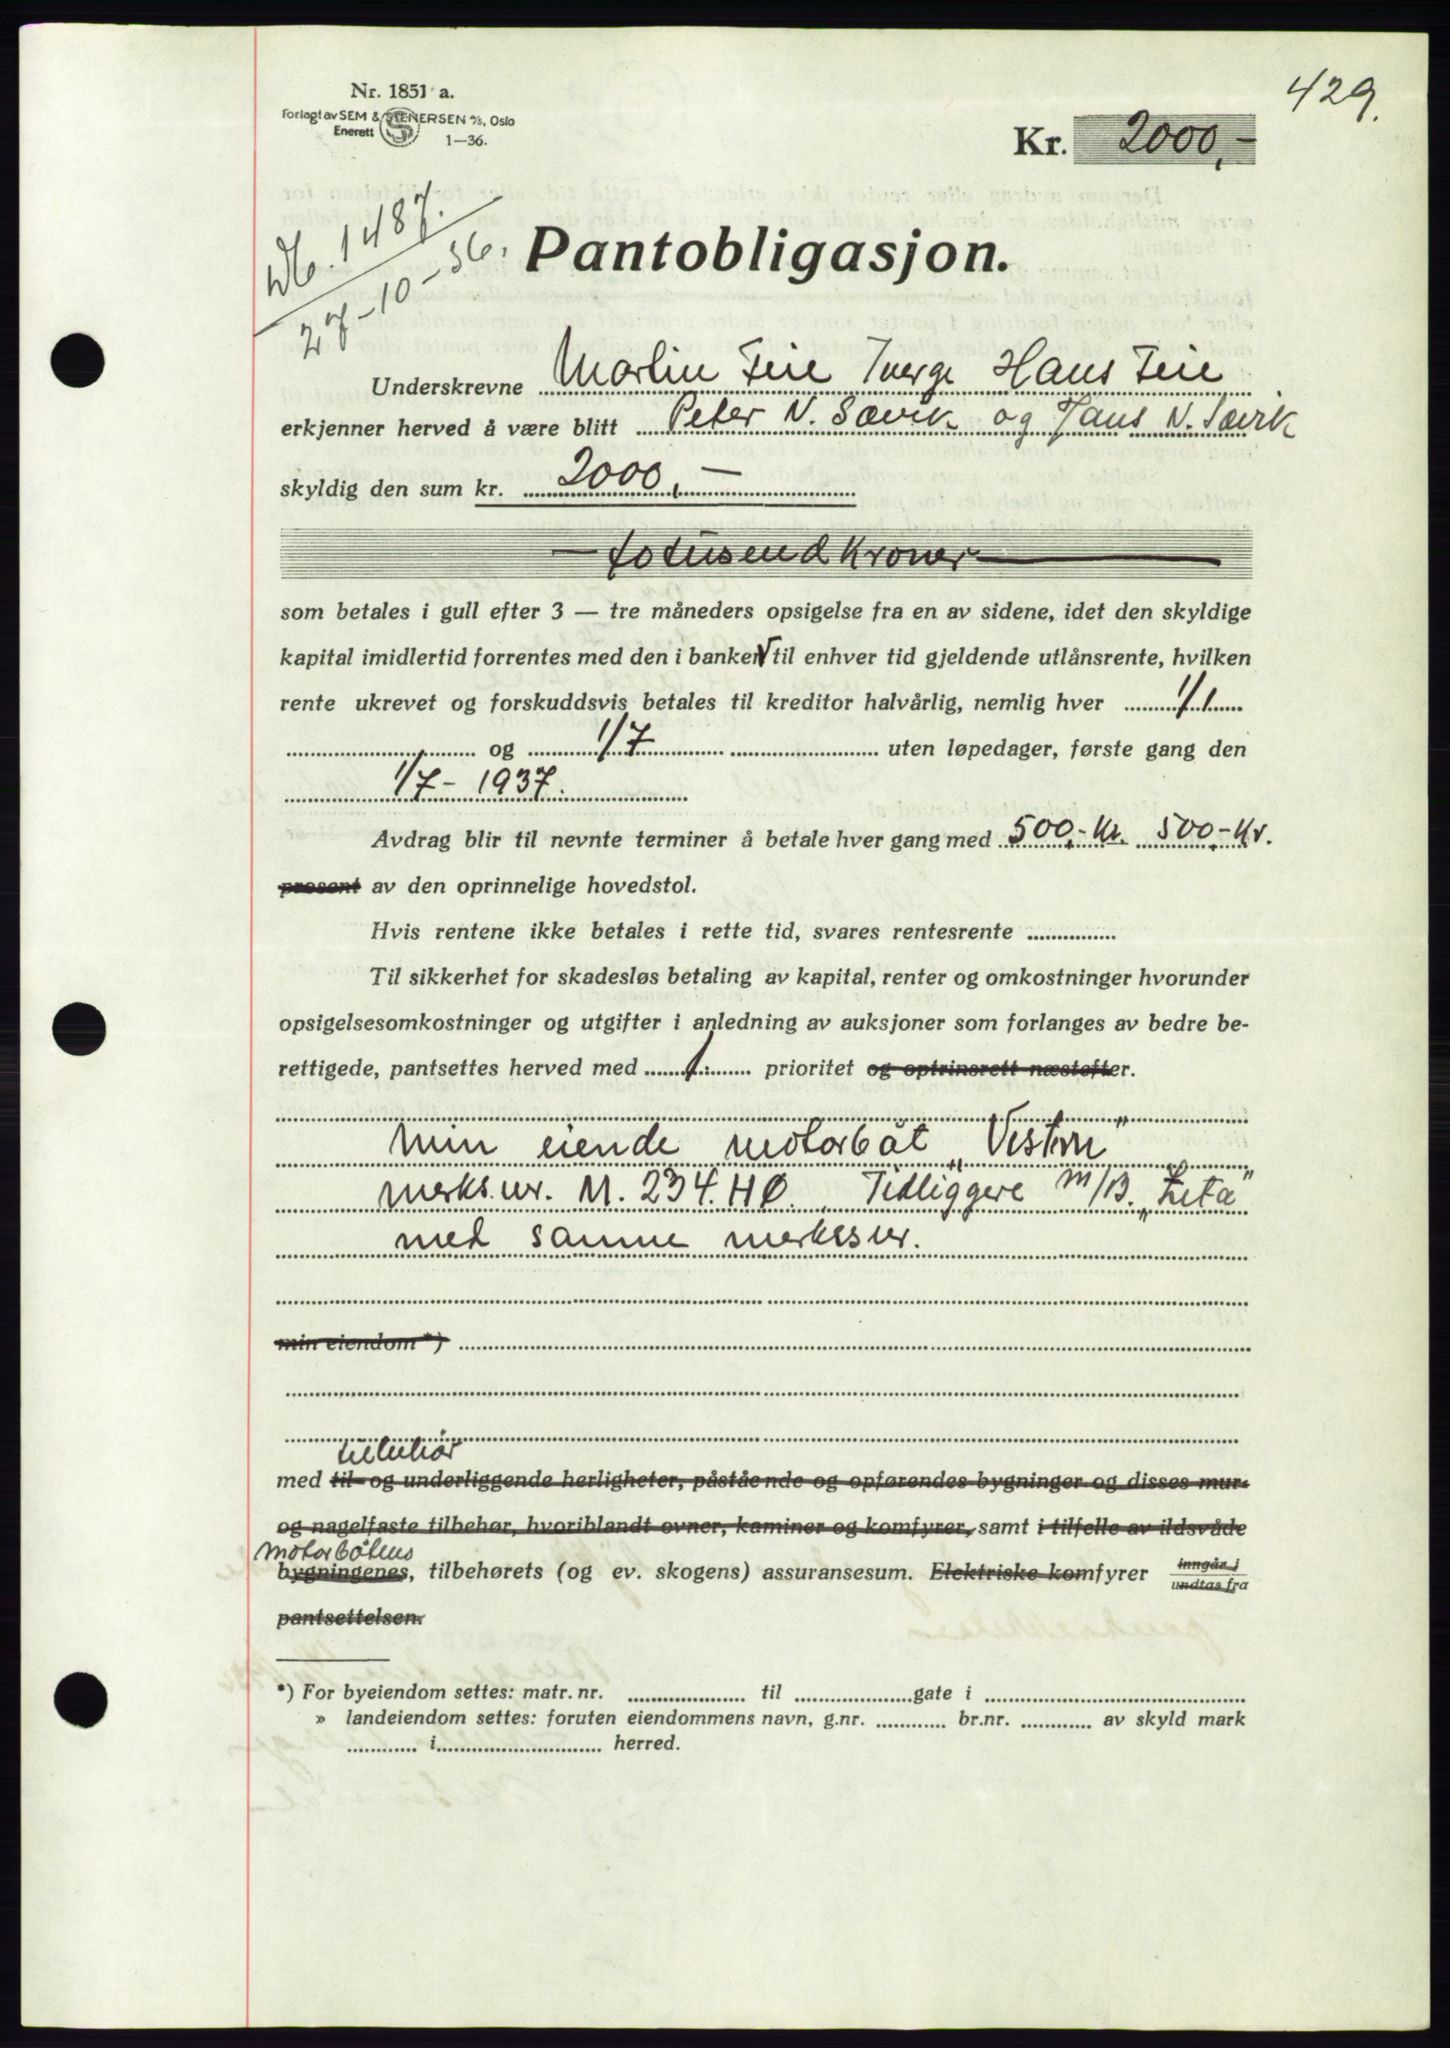 429.
Nr. 1851 a.
Forlagt av SEM & STENERSEN A/S, Oslo
Enerett
1—36.
Kr. 2000,-
Db. 1487.
27-10-36.
Pantobligasjon.
Underskrevne Martin Teie Tverge Hans Teie
erkjenner herved å være blitt Peter N. Sævik og Hans N. Sævik
skyldig den sum kr. 2000,—
— totusend kroner —
som betales i gull efter 3 — tre måneders opsigelse fra en av sidene, idet den skyldige
kapital imidlertid forrentes med den i banken til enhver tid gjeldende utlånsrente, hvilken
rente ukrevet og forskuddsvis betales til kreditor halvårlig, nemlig hver 1/1
og 1/7 uten løpedager, første gang den
1/7-1937.
Avdrag blir til nevnte terminer å betale hver gang med 500,- Kr. 500,- Kr.
prosent av den oprinnelige hovedstol.
Hvis rentene ikke betales i rette tid, svares rentesrente
Til sikkerhet for skadesløs betaling av kapital, renter og omkostninger hvorunder
opsigelsesomkostninger og utgifter i anledning av auksjoner som forlanges av bedre be-
rettigede, pantsettes herved med 1. prioritet og optrinsrett næstefter.
min eiende motorbåt „Vestern"
merks.nr. M. 234. HØ. Tidliggere M/B. „Zeta"
med samme merkesnr.
min eiendom *)
tilbehør
med til- og underliggende herligheter, påstående og opførendes bygninger og disses mur-
og nagelfaste tilbehør, hvoriblandt ovner, kaminer og komfyrer, samt i tilfelle av ildsvåde
motorbåtens
bygningenes, tilbehørets (og ev. skogens) assuransesum. Elektriske komfyrer inngår i
undtas fra
pantsettelsen.
*) For byeiendom settes: matr. nr. til gate i
» landeiendom settes: foruten eiendommens navn, g.nr. br.nr. av skyld mark
i herred.